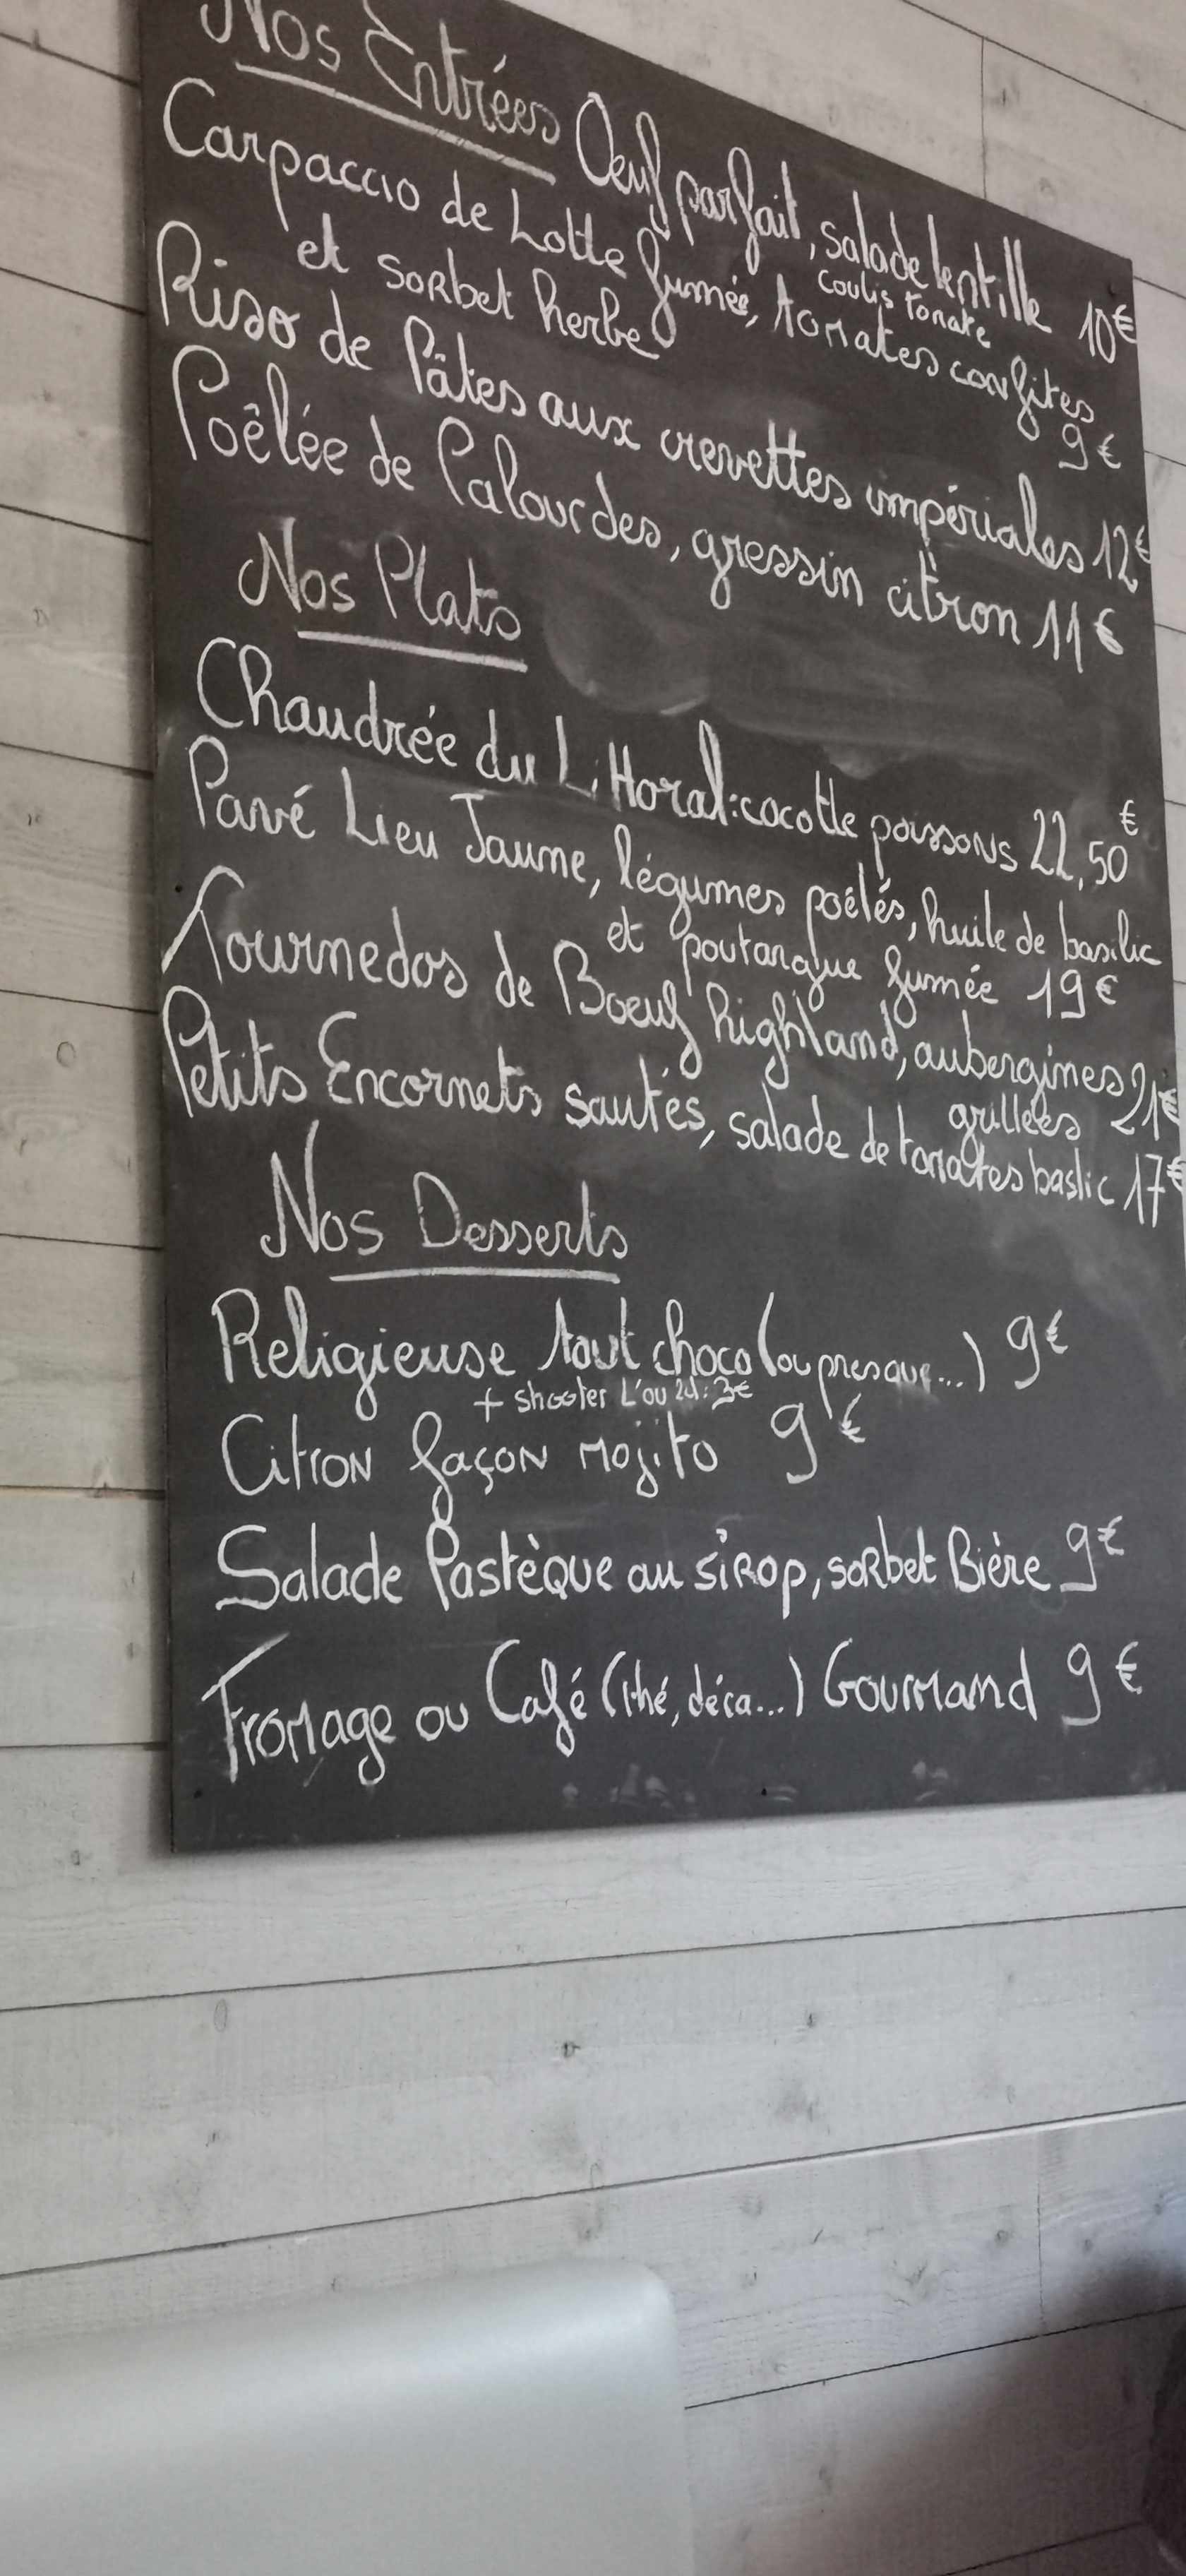 Nos Entrées
Oeuf parfait, salade lentille 10€
coulis tomate
Carpaccio de Lotte fumée, tomates confites
et sorbet herbe 9€
Riso de Pâtes aux crevettes impériales 12€
Poêlée de Palourdes, gressin citron 11€
Nos Plats
Chaudrée du Littoral: cocotte poissons 22,50€
Pavé Lieu Jaune, légumes poêlés, huile de basilic
et poutargue fumée 19€
Tournedos de Boeuf highland, aubergines 21€
grillées
Petits Encornets sautés, salade de tomates baslic 17€
Nos Desserts
Religieuse tout choco (ou presque...) 9€
+ shooter 3€
Citron façon Mojito 9€
Salade Pastèque au sirop, sorbet Bière 9€
Fromage ou Café (thé, déca...) Gourmand 9€